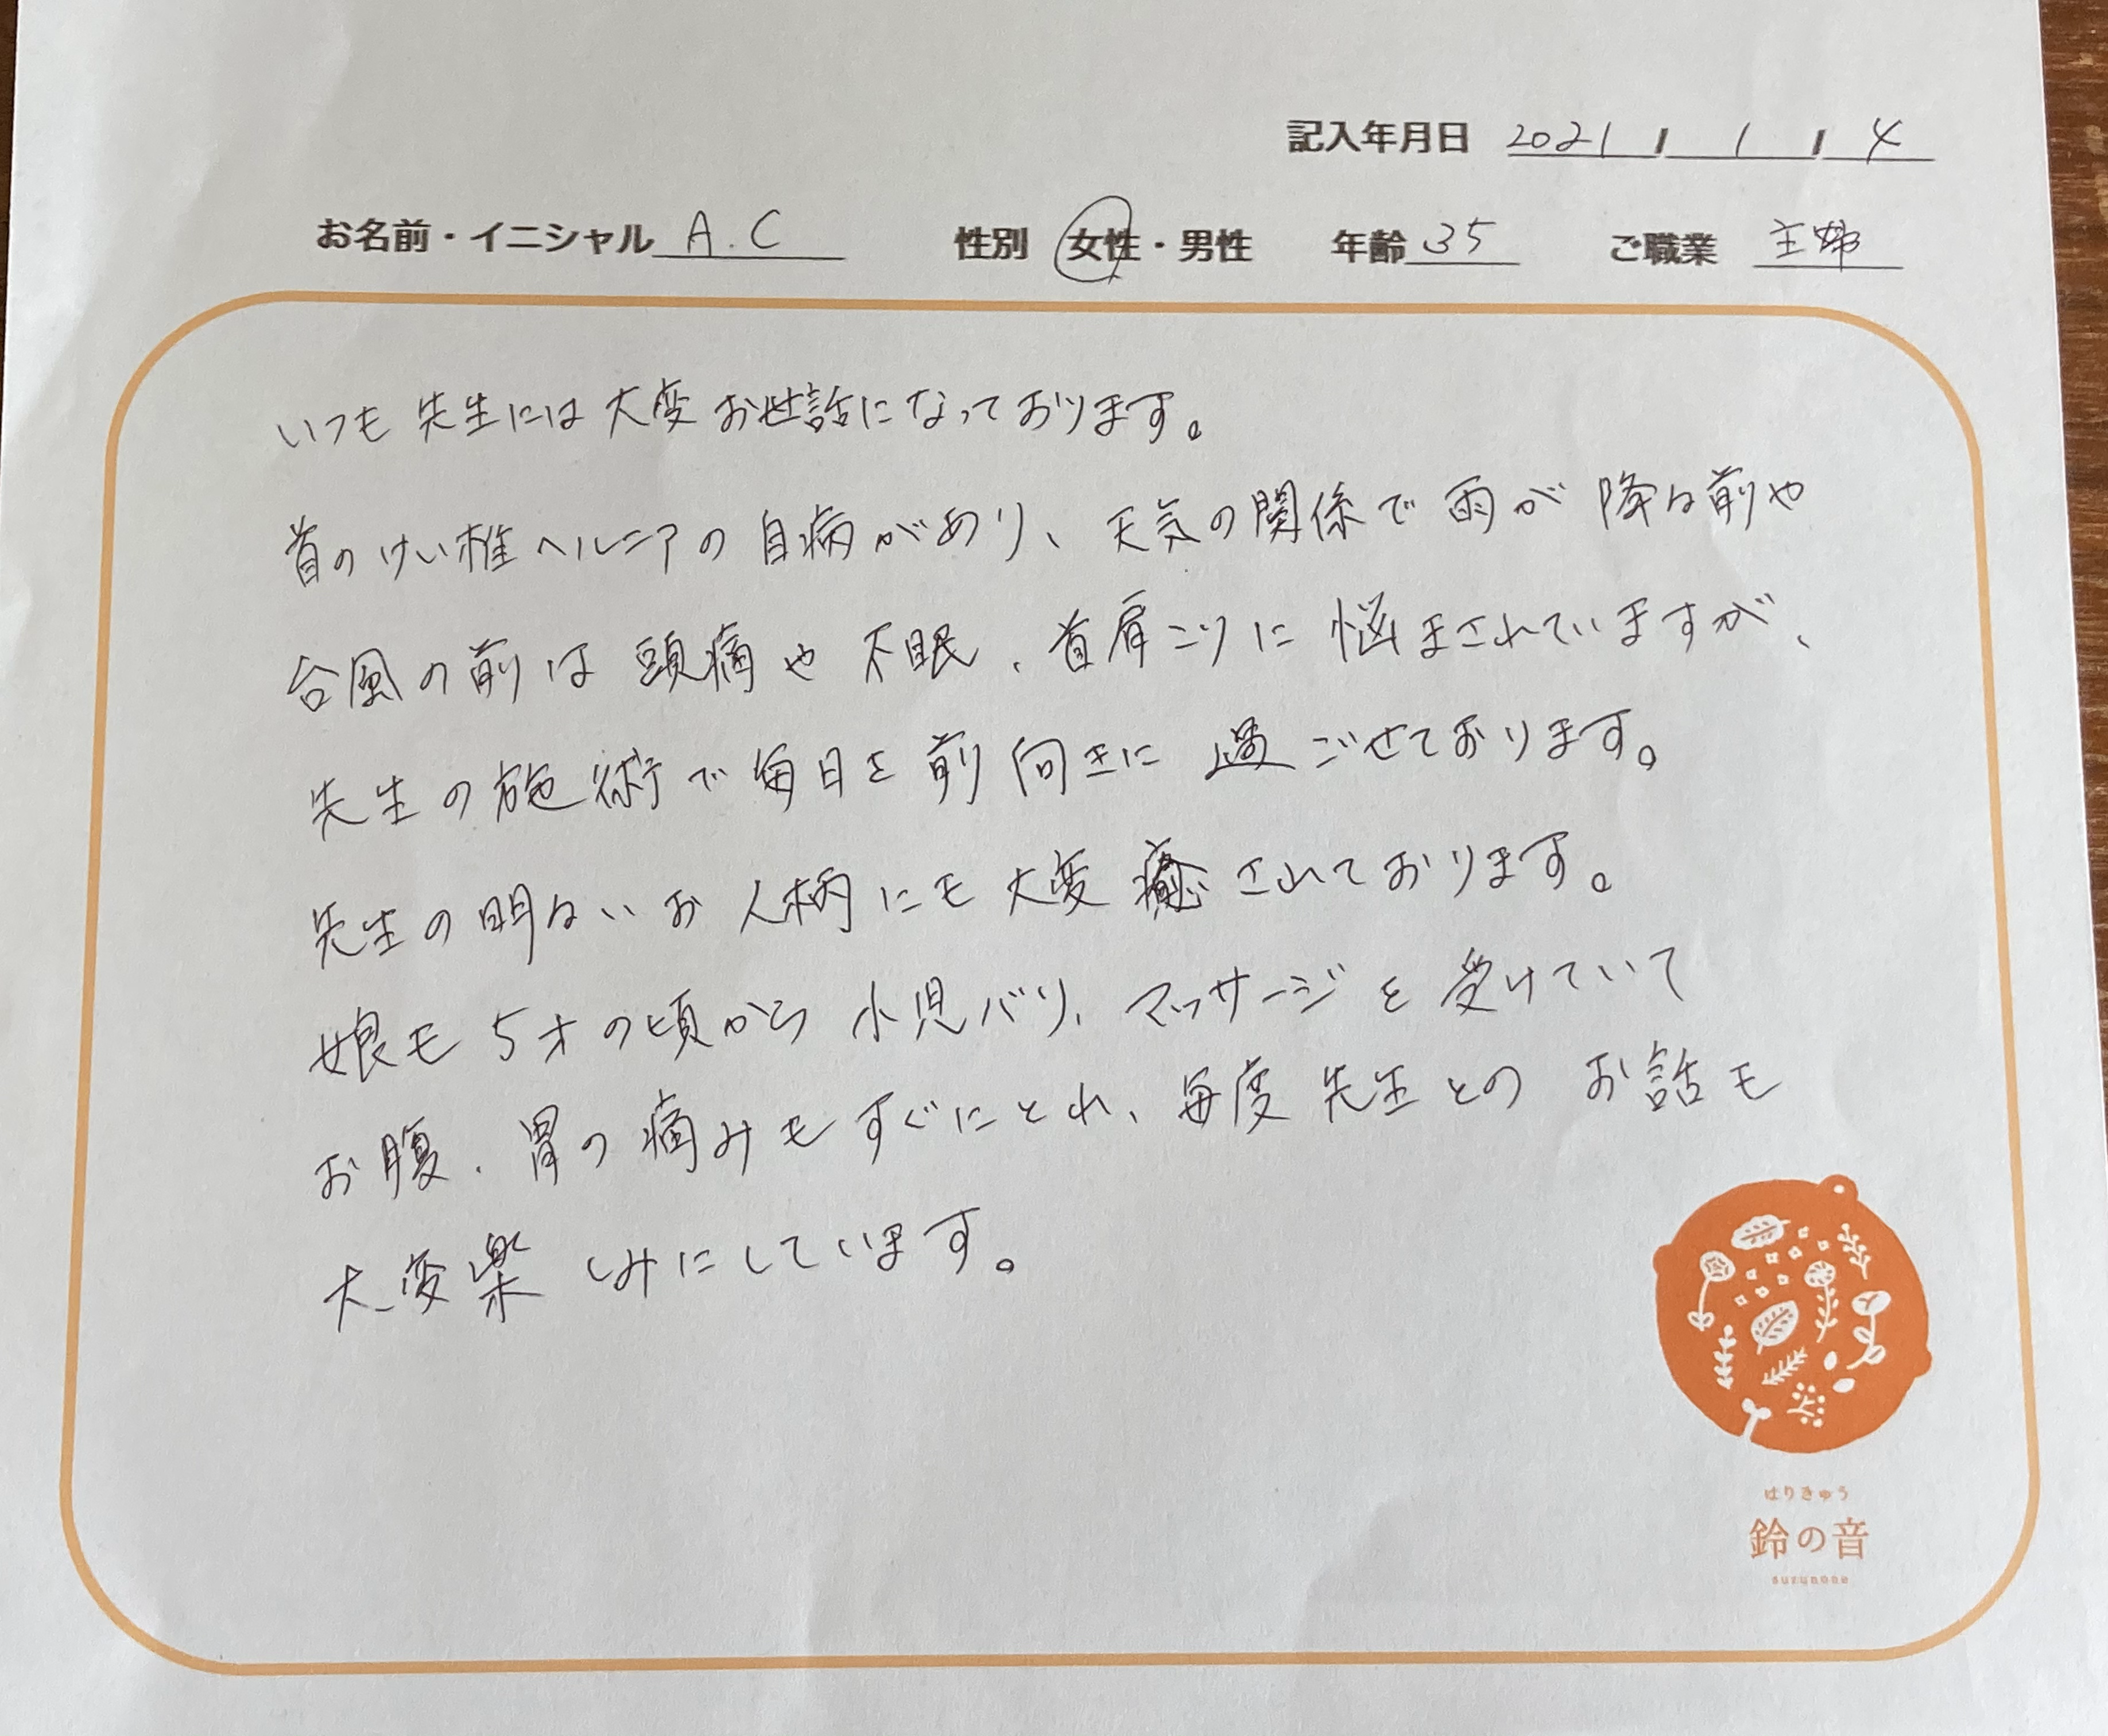 記入年月日 2021 / 1 / 4
お名前・イニシャル A.C 性別 女性・男性 年齢 35 ご職業 主婦
いつも先生には大変お世話になっております。
首のけい椎ヘルニアの自病があり、天気の関係で雨が降る前や
台風の前は頭痛や不眠、首肩こりに悩まされていますが、
先生の施術で毎日を前向きに過ごせております。
先生の明るいお人柄にも大変癒されております。
娘も5才の頃から小児バリ、マッサージを受けていて
お腹、胃の痛みもすぐにとれ、毎度先生とのお話も
大変楽しみにしています。
はりきゅう
鈴の音
suzunone